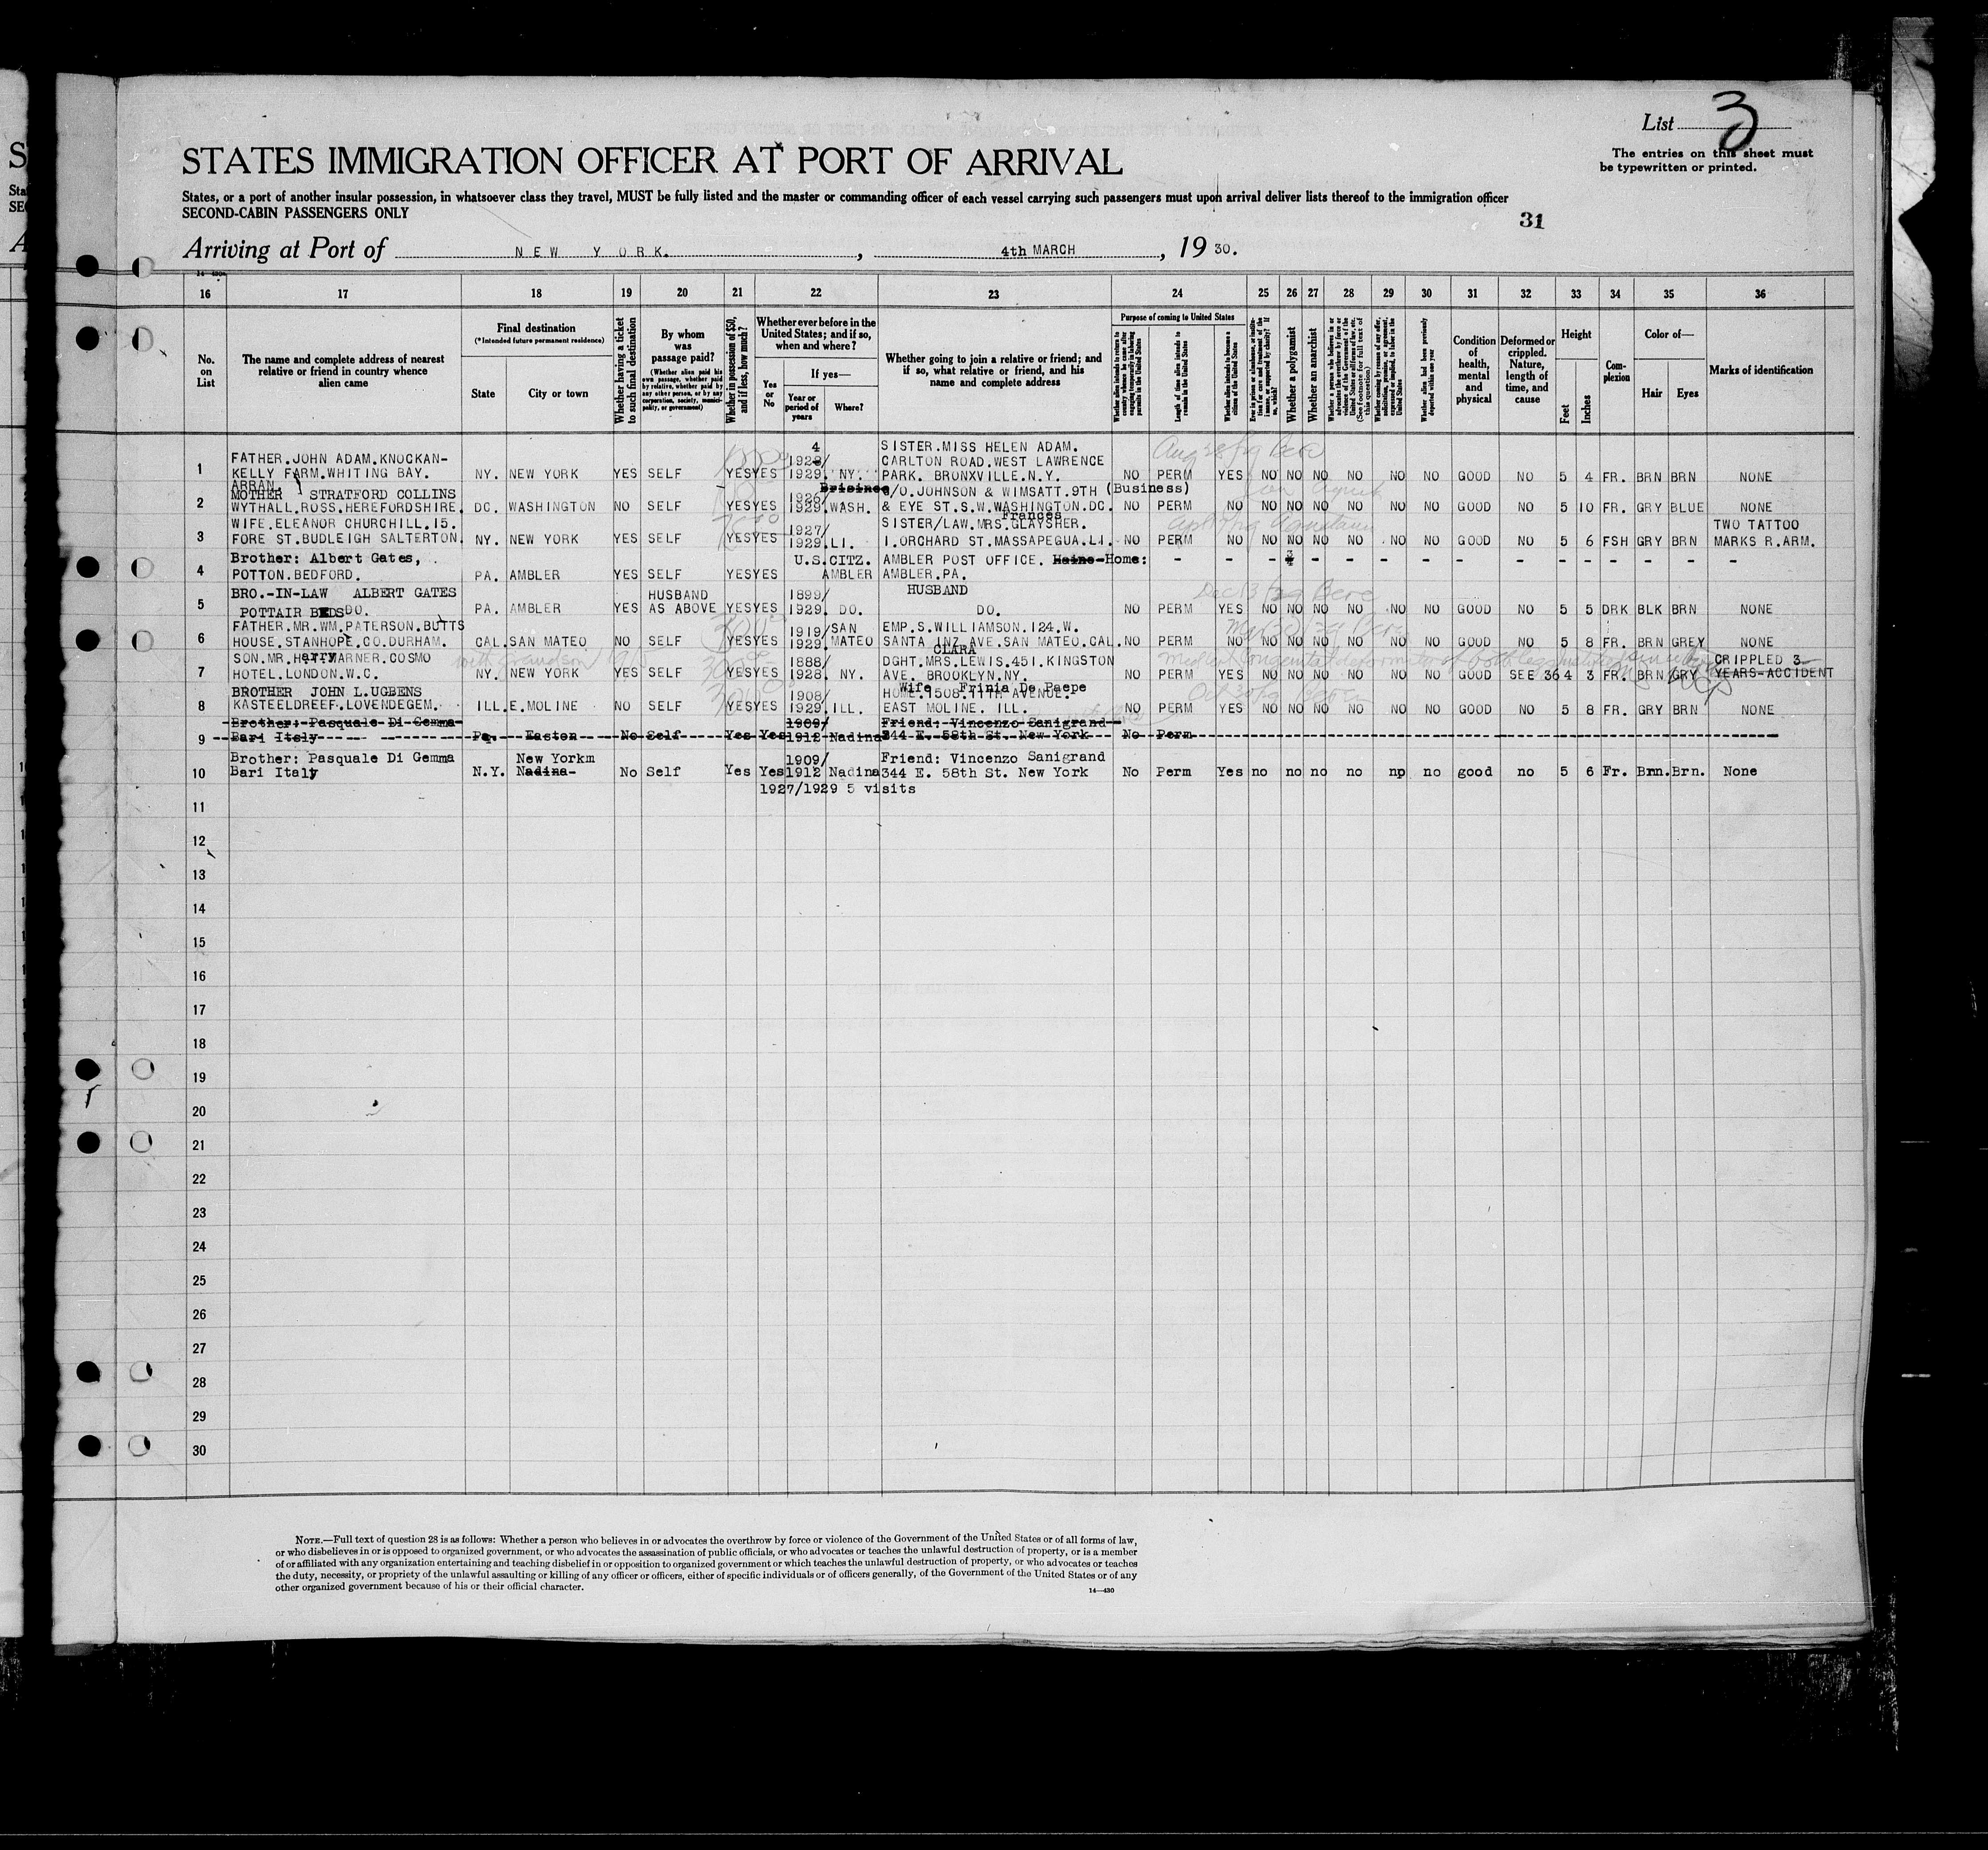 List 3
The entries on this sheet must
be typewritten or printed.
STATES IMMIGRATION OFFICER AT PORT OF ARRIVAL
States, or a port of another insular possession, in whatsoever class they travel, MUST be fully listed and the master or commanding officer of each vessel carrying such passengers must upon arrival deliver lists thereof to the immigration officer
SECOND-CABIN PASSENGERS ONLY
31
Arriving at Port of NEW YORK. , 4th MARCH , 19 30.
16 17 18 19 20 21 22 23 24 25 26 27 28 29 30 31 32 33 34 35 36
No. on List
The name and complete address of nearest relative or friend in country whence alien came
Final destination
(*Intended future permanent residence)
State
City or town
Whether having a ticket to such final destination
By whom was passage paid?
(Whether alien paid his own passage, whether paid by relative, whether paid by any other person, or by any corporation, society, municipality, or government)
Whether in possession of $50, and if less, how much?
Whether ever before in the United States; and if so, when and where?
Yes or No
If yes—
Year or period of years
Where?
Whether going to join a relative or friend; and if so, what relative or friend, and his name and complete address
Purpose of coming to United States
Length of time alien intends to remain in the United States
Whether alien intends to become a citizen of the United States
Whether a polygamist
Whether an anarchist
Condition of health, mental and physical
Deformed or crippled. Nature, length of time, and cause
Height
Feet
Inches
Complexion
Color of—
Hair
Eyes
Marks of identification
4 SISTER.MISS HELEN ADAM.
FATHER.JOHN ADAM.KNOCKAN- 1928/ CARLTON ROAD.WEST LAWRENCE
1 KELLY FARM.WHITING BAY. NY. NEW YORK YES SELF YES YES 1929. NY. PARK. BRONXVILLE.N.Y. NO PERM YES NO NO NO NO NO NO GOOD NO 5 4 FR. BRN BRN NONE
ARRAN.
2 MOTHER STRATFORD COLLINS 1926/ C/O.JOHNSON & WIMSATT.9TH (Business)
WYTHALL.ROSS.HEREFORDSHIRE. DC. WASHINGTON NO SELF YES YES 1929. WASH. & EYE ST.S.W.WASHINGTON.DC. NO PERM NO NO NO NO NO NO NO GOOD NO 5 10 FR. GRY BLUE NONE
Frances
WIFE.ELEANOR CHURCHILL.15. 1927/ SISTER/LAW.MRS.GLAYSHER. TWO TATTOO
3 FORE ST.BUDLEIGH SALTERTON. NY. NEW YORK YES SELF YES YES 1929. LI. 1.ORCHARD ST.MASSAPEGUA.L.I. NO PERM NO NO NO NO NO NO NO GOOD NO 5 6 FSH GRY BRN MARKS R.ARM.
Brother: Albert Gates, U.S.CITZ. AMBLER POST OFFICE. Home:
4 POTTON.BEDFORD. PA. AMBLER YES SELF YES YES AMBLER AMBLER.PA. - - - - - - - - - - - - - - - -
BRO.-IN-LAW ALBERT GATES HUSBAND 1899/ HUSBAND
5 POTTAIR BEDS DO. PA. AMBLER YES AS ABOVE YES YES 1929. DO. DO. NO PERM YES NO NO NO NO NO NO GOOD NO 5 5 DRK BLK BRN NONE
FATHER.MR.WM.PATERSON.BUTTS 1919/ SAN EMP.S.WILLIAMSON.124.W.
6 HOUSE.STANHOPE.CO.DURHAM. CAL. SAN MATEO NO SELF YES YES 1929. MATEO SANTA INZ AVE.SAN MATEO.CAL. NO PERM NO NO NO NO NO NO NO GOOD NO 5 8 FR. BRN GREY NONE
CLARA
SON.MR.Harry WARNER.COSMO with grandson 1888/ DGHT.MRS.LEWIS.451.KINGSTON CRIPPLED 3
7 HOTEL.LONDON.W.C. NY. NEW YORK YES SELF YES YES 1928. NY. AVE. BROOKLYN.NY. NO PERM YES NO NO NO NO NO NO GOOD SEE 36 4 3 FR. BRN GRY YEARS-ACCIDENT
Wife Frinia De Paepe
BROTHER JOHN L.UGBENS 1908/ HOME.1508.11TH AVENUE.
8 KASTEELDREEF.LOVENDEGEM. ILL. E.MOLINE NO SELF YES YES 1929. ILL. EAST MOLINE. ILL. NO PERM YES NO NO NO NO NO NO GOOD NO 5 8 FR. GRY BRN NONE
Brother: Pasquale Di Gemma 1909/ Friend: Vincenzo Sanigrand
9 Bari Italy Pa. Easton No Self Yes Yes 1912 Nadina 344 E. 58th St. New York No Perm
Brother: Pasquale Di Gemma New Yorkm 1909/ Friend: Vincenzo Sanigrand
10 Bari Italy N.Y. Nadina- No Self Yes Yes 1912 Nadina 344 E. 58th St. New York No Perm Yes no no no no np no good no 5 6 Fr. Brn. Brn. None
1927/1929 5 visits
11
12
13
14
15
16
17
18
19
20
21
22
23
24
25
26
27
28
29
30
NOTE.—Full text of question 28 is as follows: Whether a person who believes in or advocates the overthrow by force or violence of the Government of the United States or of all forms of law,
or who disbelieves in or is opposed to organized government, or who advocates the assassination of public officials, or who advocates or teaches the unlawful destruction of property, or is a member
of or affiliated with any organization entertaining and teaching disbelief in or opposition to organized government or which teaches the unlawful destruction of property, or who advocates or teaches
the duty, necessity, or propriety of the unlawful assaulting or killing of any officer or officers, either of specific individuals or of officers generally, of the Government of the United States or of any
other organized government because of his or their official character.
14—430